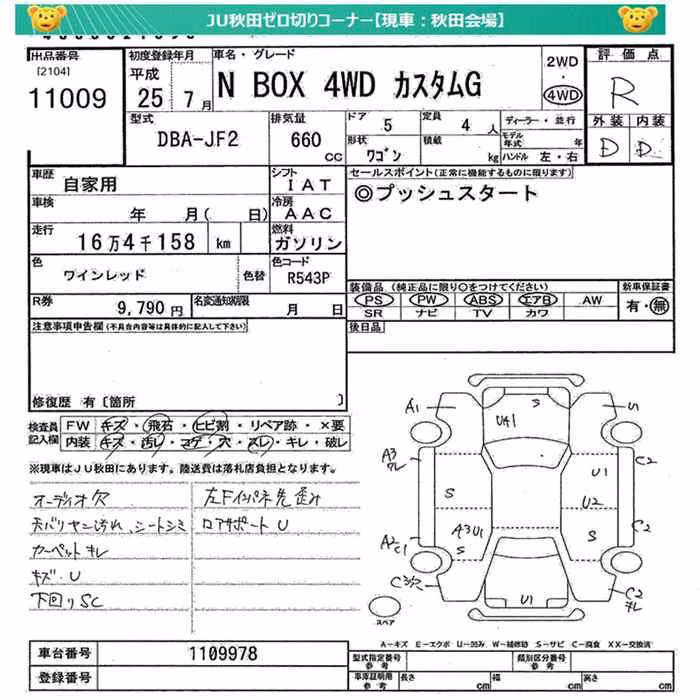 JU秋田ゼロ切りコーナー【現車：秋田会場】
出品番号
[2104]
11009
初度登録年月
平成
25 年 7 月
車名・グレード
N BOX 4WD カスタムG
2WD
・
4WD
評価点
R
外装 内装
D D
型式
DBA-JF2
排気量
660
CC
ドア 5
定員 4 人
ディーラー・並行
形状
ワゴン
積載
kg
モデル年式 年
ハンドル 左・右
車歴
自家用
シフト
IAT
車検
年 月( 日)
冷房
AAC
走行
16万4千158 km
燃料
ガソリン
色
ワインレッド
色替
色コード
R543P
R券
9,790 円
名変通知期限
月 日
セールスポイント(正常に機能するものに限ります)
◎プッシュスタート
装備品 (純正品に限り○をつけてください)
PS PW ABS エアB AW
SR ナビ TV カワ
新車保証書
有・無
後日品
注意事項申告欄(不具合内容等は具体的に記入して下さい)
修復歴 有〔箇所 〕
検査員記入欄
FW キズ・飛石・ヒビ割・リペア跡・×要
内装 キズ・汚レ・コゲ・穴・スレ・キレ・破レ
※現車はJU秋田にあります。陸送費は落札店負担となります。
オーディオ欠
天バリヤニ汚れ、シートシミ
カーペットキレ
キズ・U
下回りSC
左Fインパネ先歪み
コアサポートU
A1
U41
S
U
A3
クレ
S
U1
U2
C2
A3U1
S
S
C2
A2
C1
C3欠
U1
C2
キレ
スペア
A－キズ E－エクボ U－凹み W－補修跡 S－サビ C－腐食 XX－交換済
車台番号
1109978
登録番号
型式指定番号
参考
類別区分番号
参考
車庫証明用
参考
長さ cm
幅 cm
高さ cm